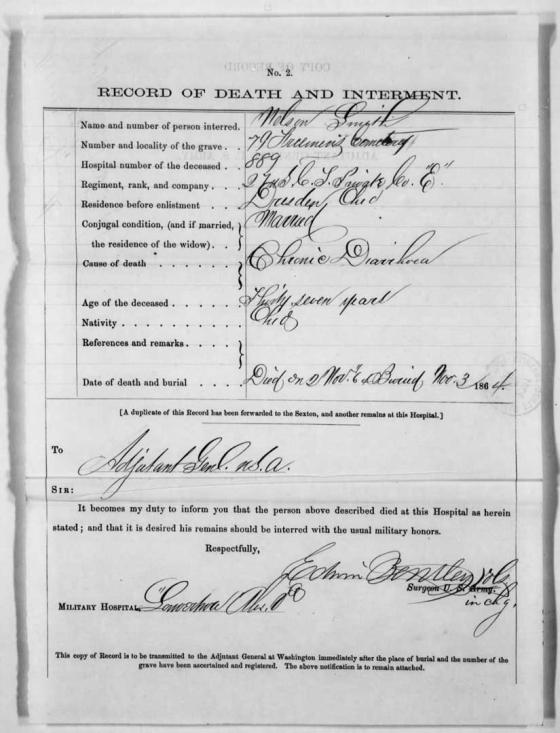 COPY OF RECORD
No. 2.
RECORD OF DEATH AND INTERMENT.
Name and number of person interred. Nelson Smith
Number and locality of the grave . . 79 Freemen's Cemetery
Hospital number of the deceased . . 889
Regiment, rank, and company . . . 27 U.S.C.T. Private Co. "E"
Residence before enlistment . . Dresden Ohio
Conjugal condition, (and if married, Married
the residence of the widow) . . .
Cause of death . . . . . . . Chronic Diarrhoea
Age of the deceased . . . . . Thirty seven years
Nativity . . . . . . . . . . Ohio
References and remarks . . . . .
Date of death and burial . . . . Died on 2 Nov. & Buried Nov. 3 1864.
[A duplicate of this Record has been forwarded to the Sexton, and another remains at this Hospital.]
To
Adjutant Genl. U.S.A.
SIR:
It becomes my duty to inform you that the person above described died at this Hospital as herein
stated; and that it is desired his remains should be interred with the usual military honors.
Respectfully,
Edwin Bentley
Surgeon U. S. Army. Vols
in chg.
MILITARY HOSPITAL,
This copy of Record is to be transmitted to the Adjutant General at Washington immediately after the place of burial and the number of the
grave have been ascertained and registered. The above notification is to remain attached.